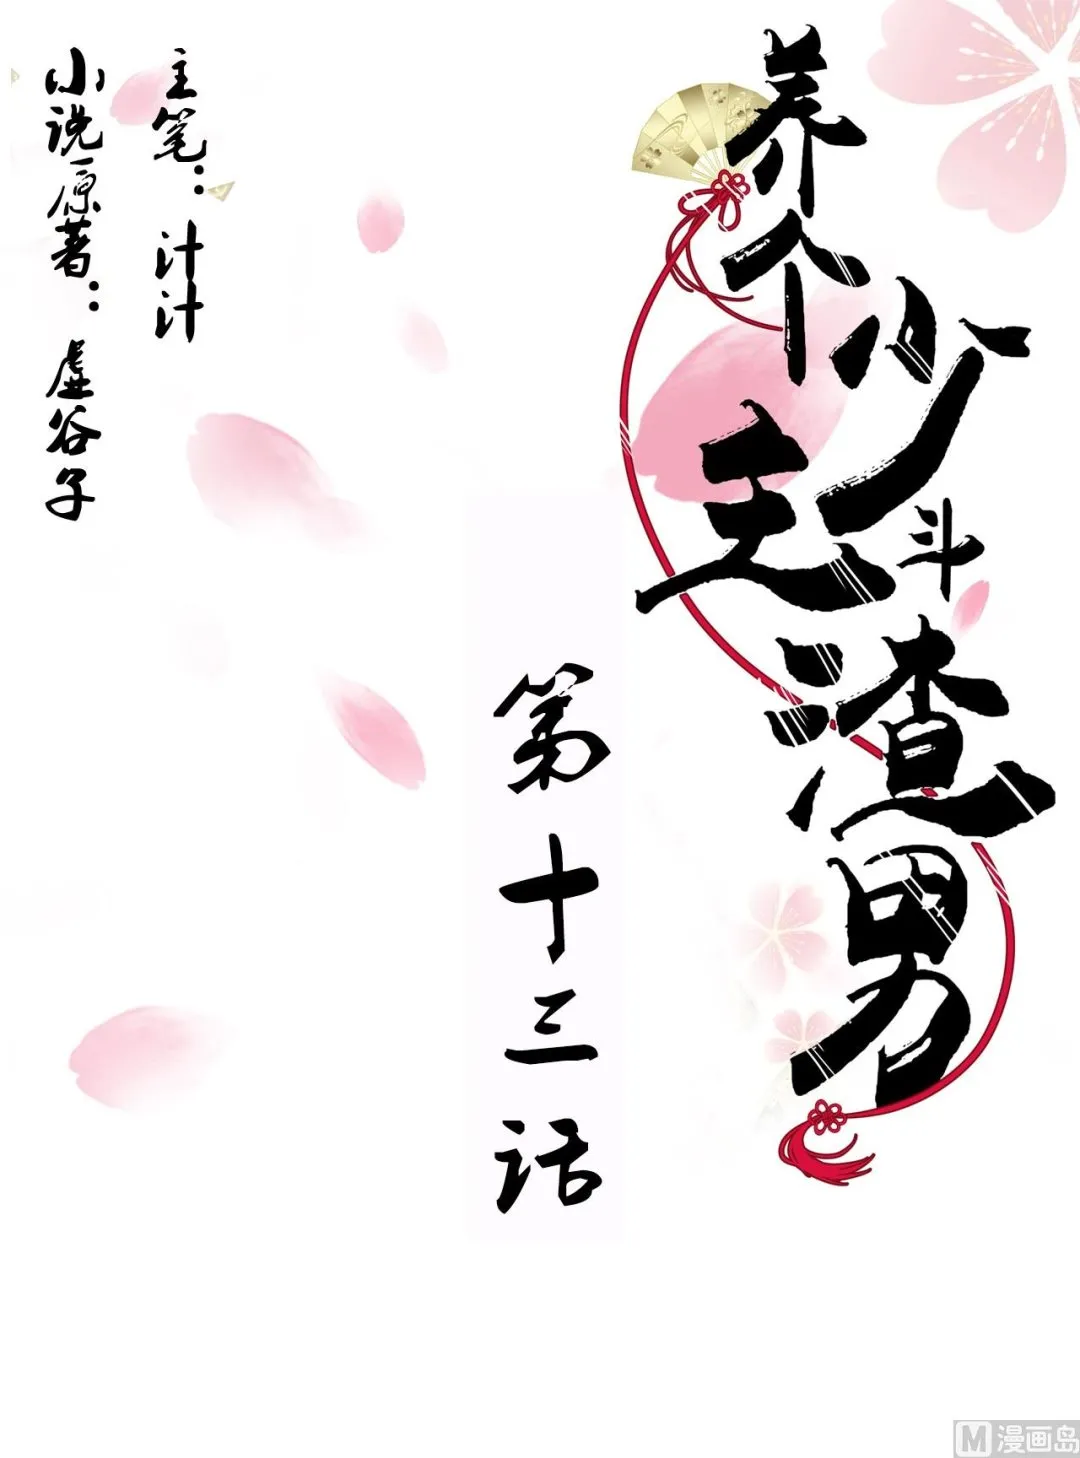 养个少主斗渣男
第十三话
主笔：计计
小说原著：虚谷子
M漫画岛